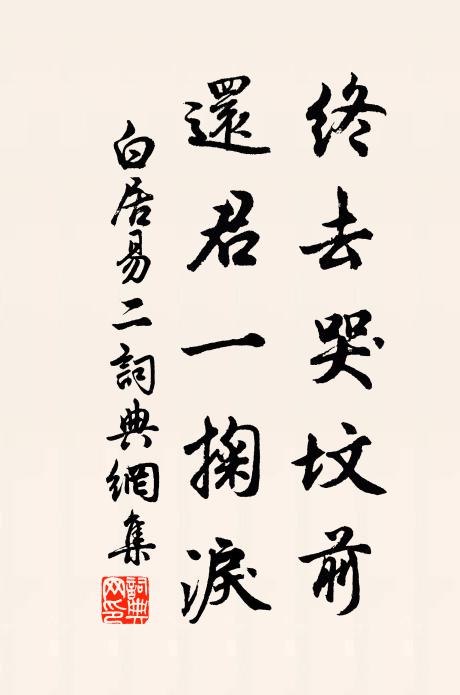 終去哭墳前
還君一掬淚
白居易二詞典網集
詞典网印